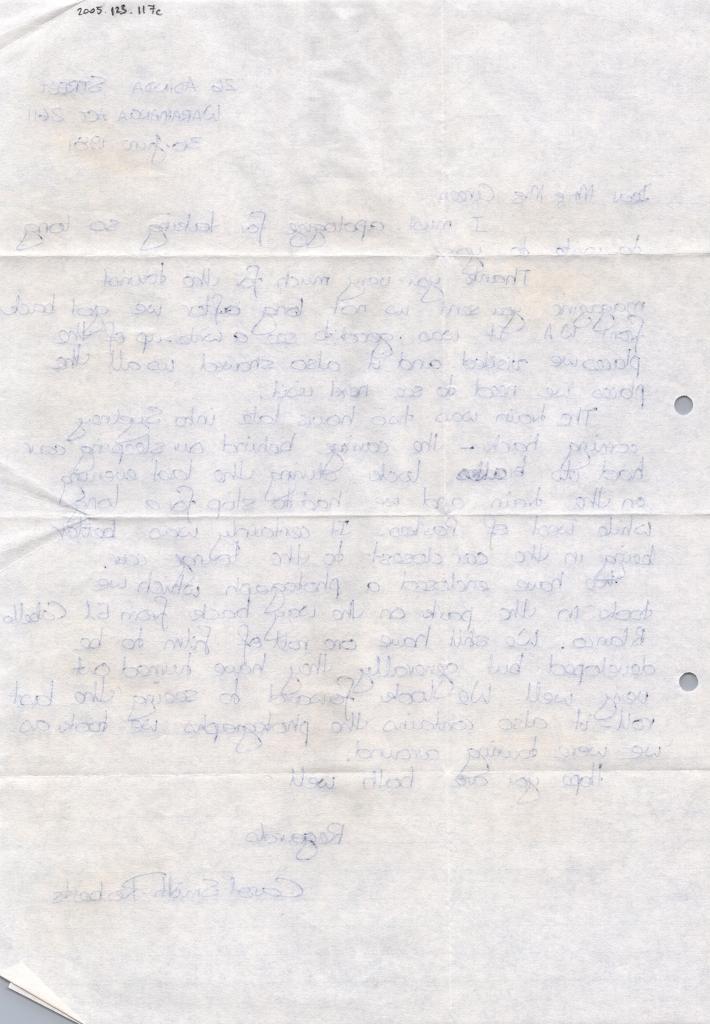 2005.123.117c
26 ADINDA STREET
WARAMANGA ACT 2611
30 June 1981
Dear Mr & Mrs Green
I must apologize for taking so long
to write to you.
Thank you very much for the tourist
magazine you sent us not long after we got back
from WA. It was good to see a write up of the
places we visited and it also showed us all the
places we need to see next visit.
The train was two hours late into Sydney
coming back - the carriage behind our sleeping car
had its brakes lock during the last evening
on the train and we had to stop for a long
while west of Parkes. It certainly was better
being in the car closest to the lounge car.
We have enclosed a photograph which we
took in the park on the way back from El Caballo
Blanco. We still have one roll of film to be
developed but generally they have turned out
very well. We look forward to seeing the last
roll - it also contains the photographs we took as
we were driving around.
Hope you are both well
Regards
Carol Smith-Roberts